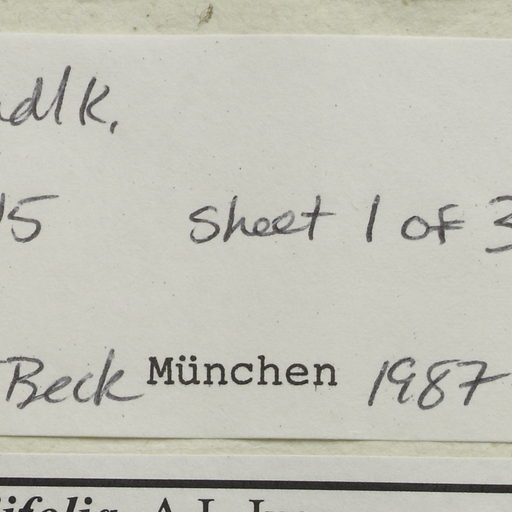 ndlk.
15 sheet 1 of 3
Beck München 1987
ifolia A.J.